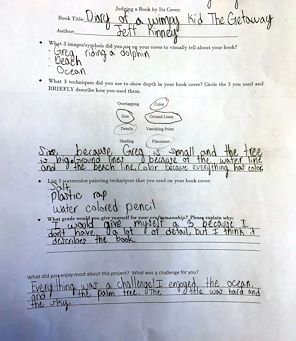 Judging a Book by Its Cover
Book Title: Diary of a wimpy kid The Getaway
Author: Jeff Kinney
• What 3 images/symbols did you put on your cover to visually tell about your book?
- Greg riding a dolphin
- Beach
- Ocean
• What 3 techniques did you use to show depth in your book cover? Circle the 3 you used and
BRIEFLY describe how you used them.
Overlapping Color
Size Ground Lines
Details Vanishing Point
Shading Placement
Size, because Greg is small and the tree
is big, Ground lines because of the water line
and the beach line, Color because everything has color.
• List 3 watercolor painting techniques that you used on your book cover:
Salt
Plastic rap
water colored pencil
• What grade would you give yourself for craftsmanship? Please explain why:
I would give myself a because I
don't have a lot of detail, but I think it
describes the book.
What did you enjoy most about this project? What was a challenge for you?
Everything was a challenge! I enjoyed the ocean,
and the palm tree. The title was hard and
the sky.